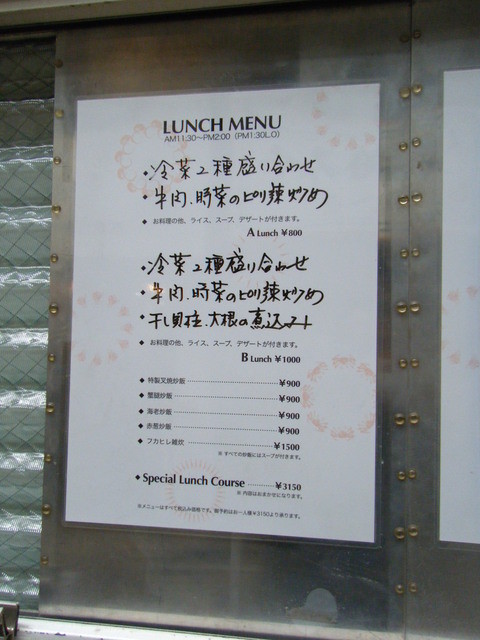 LUNCH MENU
AM11:30〜PM2:00 (PM1:30L.O)
・冷菜2種盛り合わせ
・牛肉、時菜のピリ辣炒め
◆ お料理の他、ライス、スープ、デザートが付きます。
A Lunch ¥800
・冷菜2種盛り合わせ
・牛肉、時菜のピリ辣炒め
・干し貝柱、大根の煮込み
◆ お料理の他、ライス、スープ、デザートが付きます。
B Lunch ¥1000
◆ 特製叉焼炒飯 ¥900
◆ 蟹鬚炒飯 ¥900
◆ 海老炒飯 ¥900
◆ 赤葱炒飯 ¥900
◆ フカヒレ雑炊 ¥1500
※ すべての炒飯にはスープが付きます。
◆ Special Lunch Course ¥3150
※ 内容はおまかせになります。
※メニューはすべて税込み価格です。御予約はお一人様¥3150より承ります。